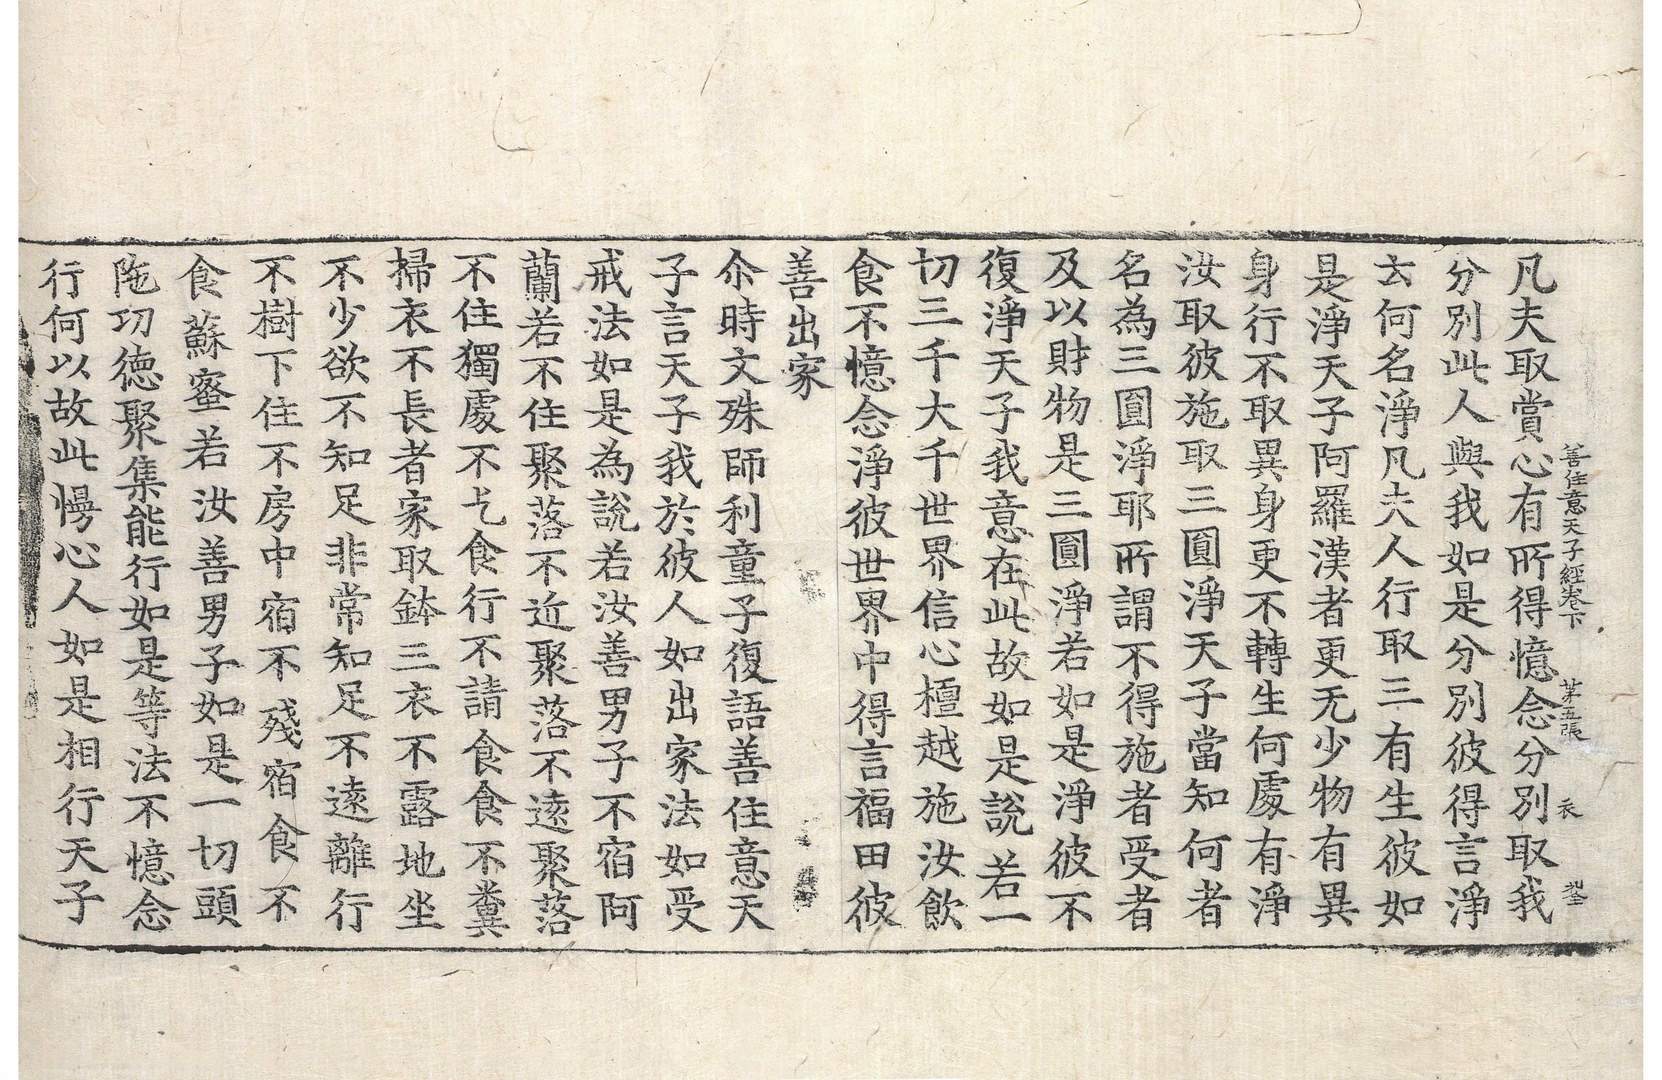 善住意天子經卷下 第五張 衣
凡夫取賞心有所得憶念分別取我
分別此人與我如是分別彼得言淨
云何名淨凡夫人行取三有生彼如
是淨天子阿羅漢者更无少物有異
身行不取異身更不轉生何處有淨
汝取彼施取三圓淨天子當知何者
名為三圓淨耶所謂不得施者受者
及以財物是三圓淨若如是淨彼不
復淨天子我意在此故如是說若一
切三千大千世界信心檀越施汝飲
食不憶念淨彼世界中得言福田彼
善出家
尒時文殊師利童子復語善住意天
子言天子我於彼人如出家法如受
戒法如是為說若汝善男子不宿阿
蘭若不住聚落不近聚落不遠聚落
不住獨處不乞食行不請食食不糞
掃衣不長者家取鉢三衣不露地坐
不少欲不知足非常知足不遠離行
不樹下住不房中宿不殘宿食不
食蘇蜜若汝善男子如是一切頭
陁功德聚集能行如是等法不憶念
行何以故此慢心人如是相行天子